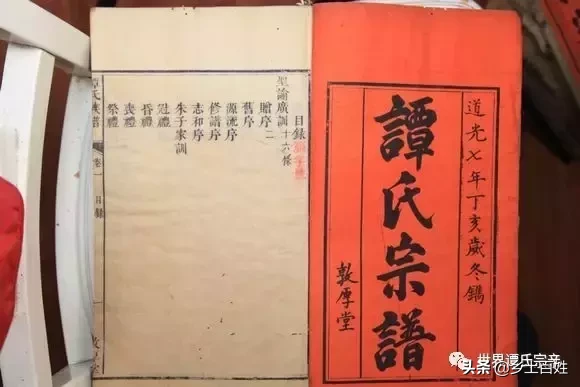 道光七年丁亥歲冬鐫
譚氏宗譜
敦厚堂
目錄
聖諭廣訓十六條
贈序二
舊序
源流序
修譜序
志和序
朱子家訓
冠禮
昏禮
喪禮
祭禮
氏族譜 卷一 目錄
世界谭氏宗亲
头条 @乡土百姓